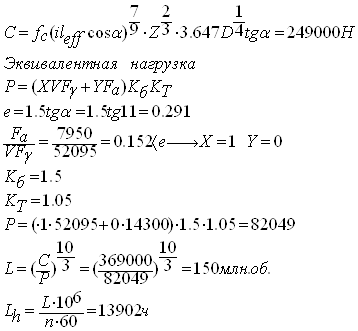 C = f_c(il_eff cosα)^(7/9)·Z^(2/3)·3.647D^(1/4)tgα = 249000H
Эквивалентная нагрузка
P = (XVF_γ + YF_a)K_б K_T
e = 1.5tgα = 1.5tg11 = 0.291
F_a/VF_γ = 7950/52095 = 0.152⟨e ⟶ X = 1 Y = 0
K_б = 1.5
K_T = 1.05
P = (·1·52095 + 0·14300)·1.5·1.05 = 82049
L = (C/P)^(10/3) = (369000/82049)^(10/3) = 150млн.об.
L_h = L·10^6/n·60 = 13902ч